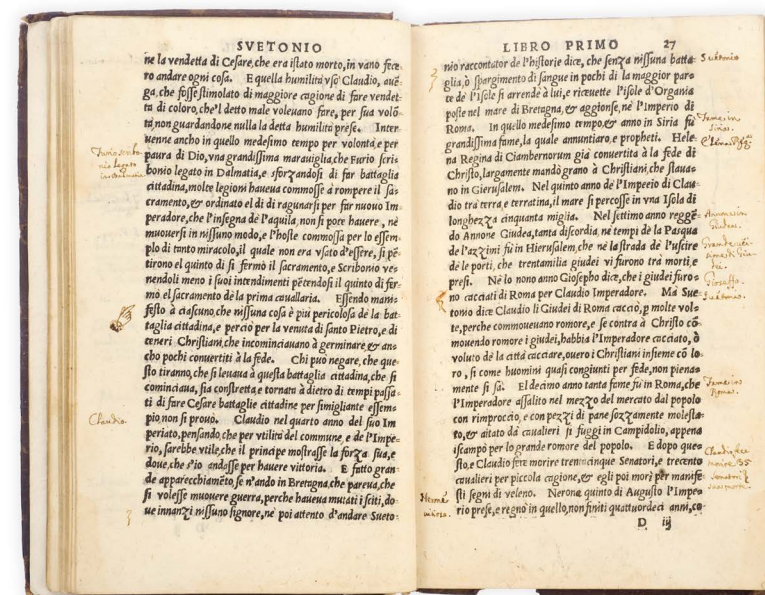 SVETONIO
ne la vendetta di Cesare, che era istato morto, in vano fece-
ro andare ogni cosa. E quella humilità vsò Claudio, auẽ-
ga, che fosse stimolato di maggiore cagione di fare vendet
ta di coloro, che'l detto male voleuano fare, per sua volõ
tà, non guardandone nulla la detta humilità prese. Inter
uenne ancho in quello medesimo tempo per volontà, e per
paura di Dio, vna grandissima marauiglia, che Furio scri
bonio legato in Dalmatia, e sforzandosi di far battaglia
cittadina, molte legioni haueua commosse à rompere il sa-
cramento, & ordinato el dì di ragunarsi per far nuouo Im
peradore, che l'insegna de l'aquila, non si pote hauere, nè
muouersi in nissuno modo, e l'hoste commossa per lo essem
plo di tanto miracolo, il quale non era vsato d'essere, si pẽ
tirono el quinto dì si fermò il sacramento, e Scribonio ve-
nendoli meno i suoi intendimenti pẽtendosi il quinto dì fer
mò el sacramento dè la prima cauallaria. Essendo mani-
festo à ciascuno, che nissuna cosa è piu pericolosa dè la bat-
taglia cittadina, e perciò per la venuta di santo Pietro, e di
teneri Christiani, che incominciauano à germinare, & an-
cho pochi conuertiti à la fede. Chi può negare, che que-
sto tiranno, che si leuaua à questa battaglia cittadina, che si
cominciaua, sia constretta, e tornata à dietro di tempi passa-
ti di fare Cesare battaglie cittadine per simigliante essem-
pio, non si prouò. Claudio nel quarto anno del suo Im
periato, pensando, che per vtilità del commune, e de l'Impe-
rio, sarebbe vtile, che il principe mostrasse la forza sua, e
doue, che s'io andasse per hauere vittoria. E fatto gran-
de apparecchiamẽto, se n'andò in Bretagna, che pareua, che
si volesse muouere guerra, perche haueua mutati i sciti, do-
ue innanzi nissuno signore, nè poi attento d'andare Sueto-
Claudio.
LIBRO PRIMO 27
nio raccontator de l'historie dice, che senza nissuna batta-
glia, ò spargimento di sangue in pochi dì la maggior par-
te dè l'Isole si arrendè à lui, e riceuette l'isole d'Organia
poste nel mare di Bretagna, & aggionse, nè l'Imperio di
Roma. In quello medesimo tempo, & anno in Siria fù
grandissima fame, la quale annuntiaro, e propheti. Hele-
na Regina di Ciambernorum già conuertita à la fede di
Christo, largamente mandò grano à Christiani, che staua-
no in Gierusalem. Nel quinto anno de l'Imperio di Clau-
dio tra terra, e terratina, il mare si percosse in vna Isola di
longhezza cinquanta miglia. Nel settimo anno reggẽ-
do Annone Giudea, tanta discordia, nè tempi de la Pasqua
de l'azzimi fù in Hierusalem, che nè la strada dè l'uscire
dè le porti, che trentamilia giudei vi furono tra morti, e
presi. Nè lo nono anno Giosepho dice, che i giudei furo-
no cacciati di Roma per Claudio Imperadore. Mà Sue
tonio dice Claudio li Giudei di Roma cacciò, p molte vol-
te, perche commoueuano romore, e se contra à Christo cõ-
mouendo romore i giudei, habbia l'Imperadore cacciato, ò
voluto dè la città cacciare, ouero i Christiani insieme cõ lo-
ro, si come huomini quasi congiunti per fede, non piena-
mente si sà. El decimo anno tanta fame fù in Roma, che
l'Imperadore assalito nel mezzo del mercato dal popolo
con rimproccio, e con pezzi di pane sozzamente molesta-
to, & aitato da caualieri si fuggì in Campidolio, appena
iscampò per lo grande romore del popolo. E dopo que-
sto, e Claudio fece morire trentacinque Senatori, e trecento
caualieri per piccola cagione, & egli poi morì per manife
sti segni di veleno. Nerona quinto di Augusto l'Impe-
rio prese, e regnò in quello, non finiti quattuordeci anni, co-
D iij
Suetonio
Fame in
Siria.
Fame in
Roma.